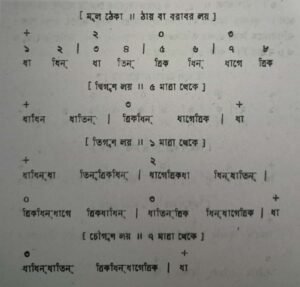 [ মূল ঠেকা ॥ ঠায় বা বরাবর লয় ]
+ ২ ০ ৩
১ ২ | ৩ ৪ | ৫ ৬ | ৭ ৮
ধা ধিন্ ধা তিন্ ত্রিক ধিন্ ধাগে ত্রিক
[ দ্বিগুণ লয় ॥ ৫ মাত্রা থেকে ]
+ ৩ +
ধাধিন ধাতিন্ | ত্রিকধিন্ ধাগেত্রিক | ধা
[ তিগুণ লয় ॥ ১ মাত্রা থেকে ]
+ ২
ধাধিন্ধা তিন্ত্রিকধিন্ | ধাগেত্রিকধা ধিন্ধাতিন্ |
০ ৩ +
ত্রিকধিন্ধাগে ত্রিকধাধিন্ | ধাতিন্ত্রিক ধিন্ধাগেত্রিক | ধা
[ চৌগুণ লয় ॥ ৭ মাত্রা থেকে ]
৩ +
ধাধিন্ধাতিন্ ত্রিকধিন্ধাগেত্রিক | ধা